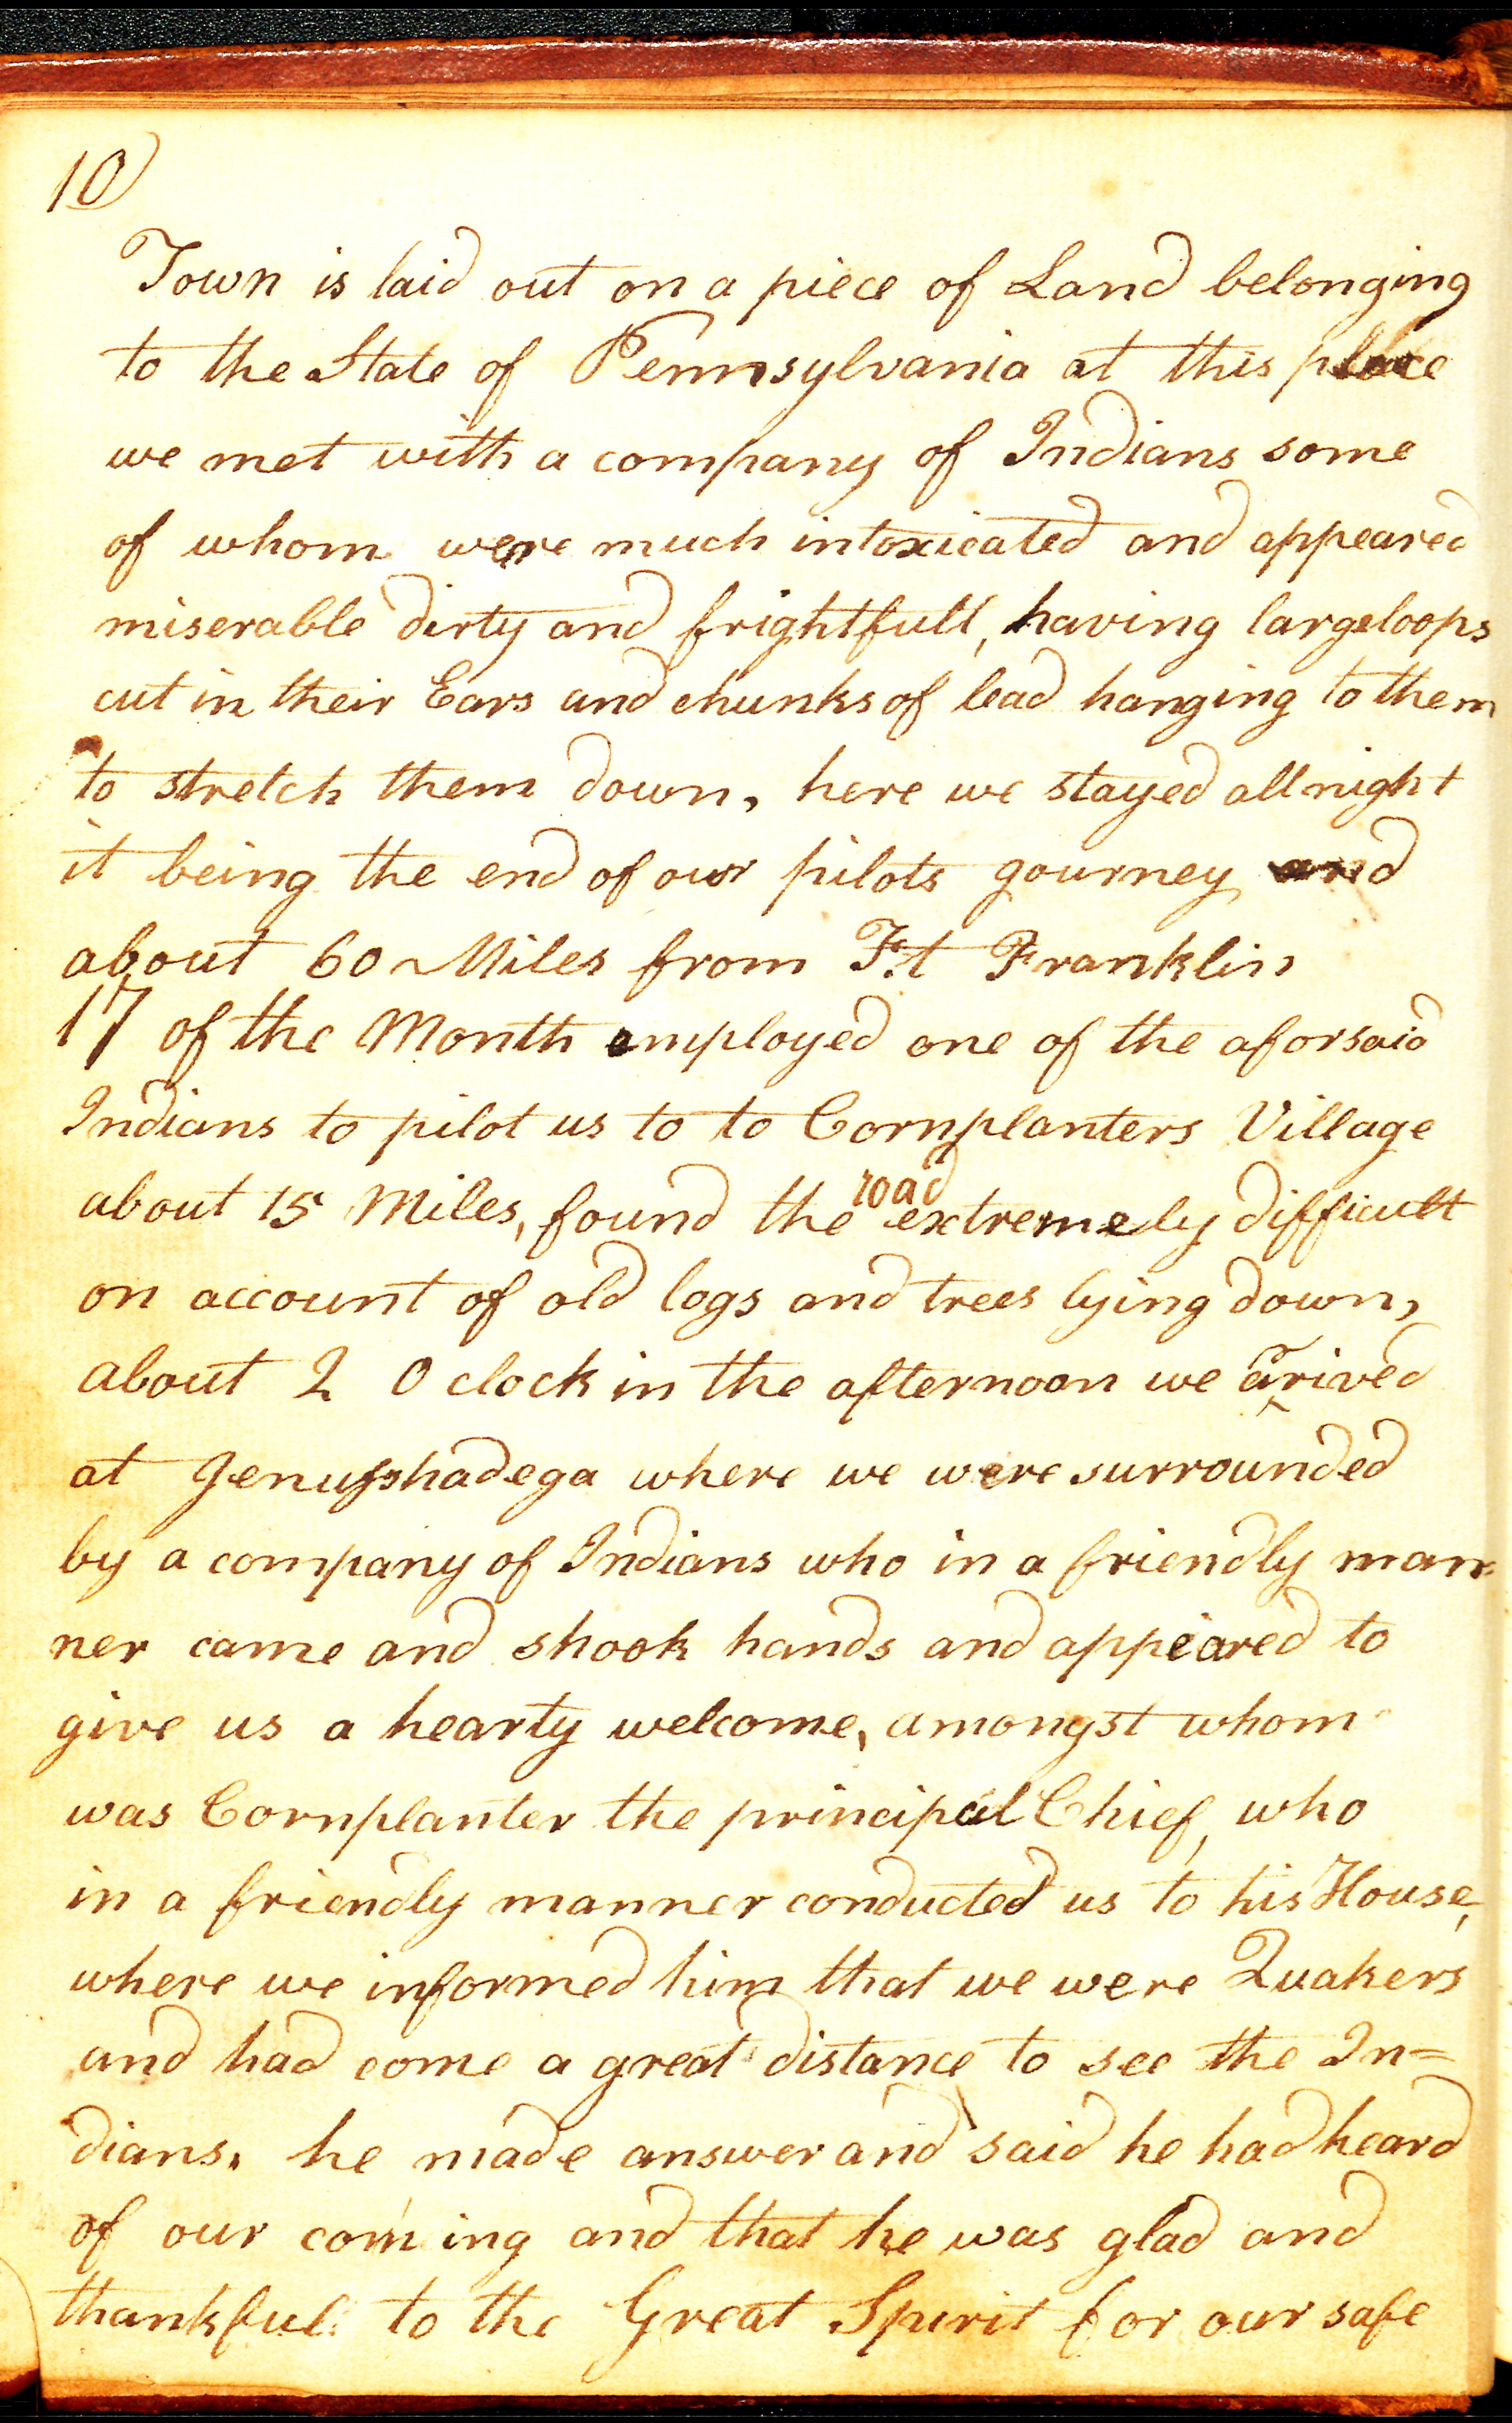 10
Town is laid out on a piece of Land belonging
to the State of Pennsylvania at this place
we met with a company of Indians some
of whom were much intoxicated and appeared
miserable dirty and frightfull, having large loops
cut in their Ears and chunks of lead hanging to them
to stretch them down, here we stayed all night
it being the end of our pilots gourney and
about 60 Miles from Ft Franklin
17 of the Month employed one of the aforsaid
Indians to pilot us to to Cornplanters Village
about 15 Miles, found the road extremely difficult
on account of old logs and trees lying down,
about 2 O clock in the afternoon we arrived
at Jenusshadega where we were surrounded
by a company of Indians who in a friendly man-
ner came and shook hands and appeared to
give us a hearty welcome, amongst whom
was Cornplanter the principal Chief, who
in a friendly manner conducted us to his House,
where we informed him that we were Quakers
and had come a great distance to see the In=
dians. he made answer and said he had heard
of our coming and that he was glad and
thankful to the Great Spirit for our safe